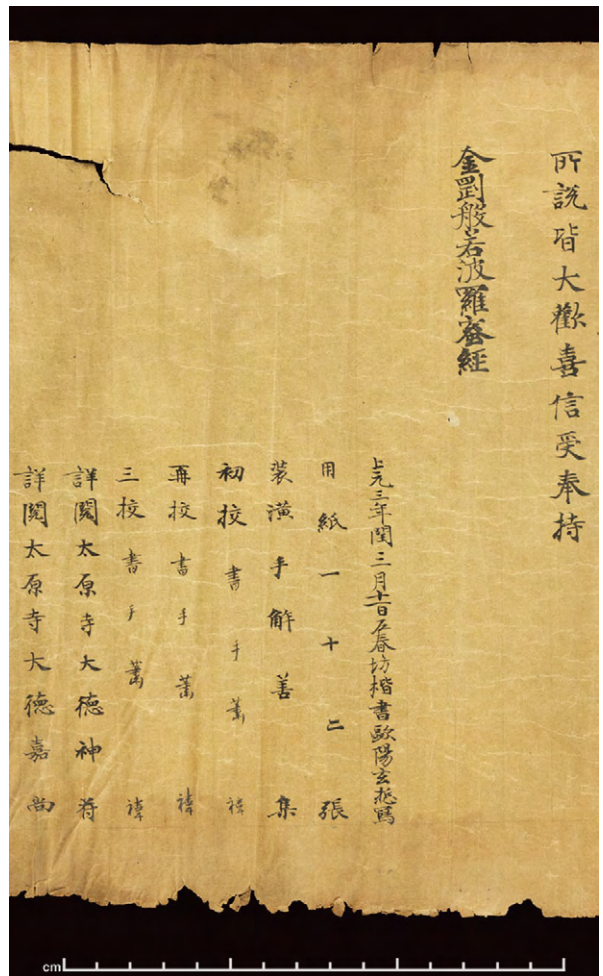 所說皆大歡喜信受奉持
金剛般若波羅蜜經
上元三年閏三月十一日左春坊楷書歐陽玄悊寫
用紙一十二張
裝潢手解善集
初挍書手蕭禕
再挍書手蕭禕
三挍書手蕭禕
詳閱太原寺大德神苻
詳閱太原寺大德嘉尚
cm